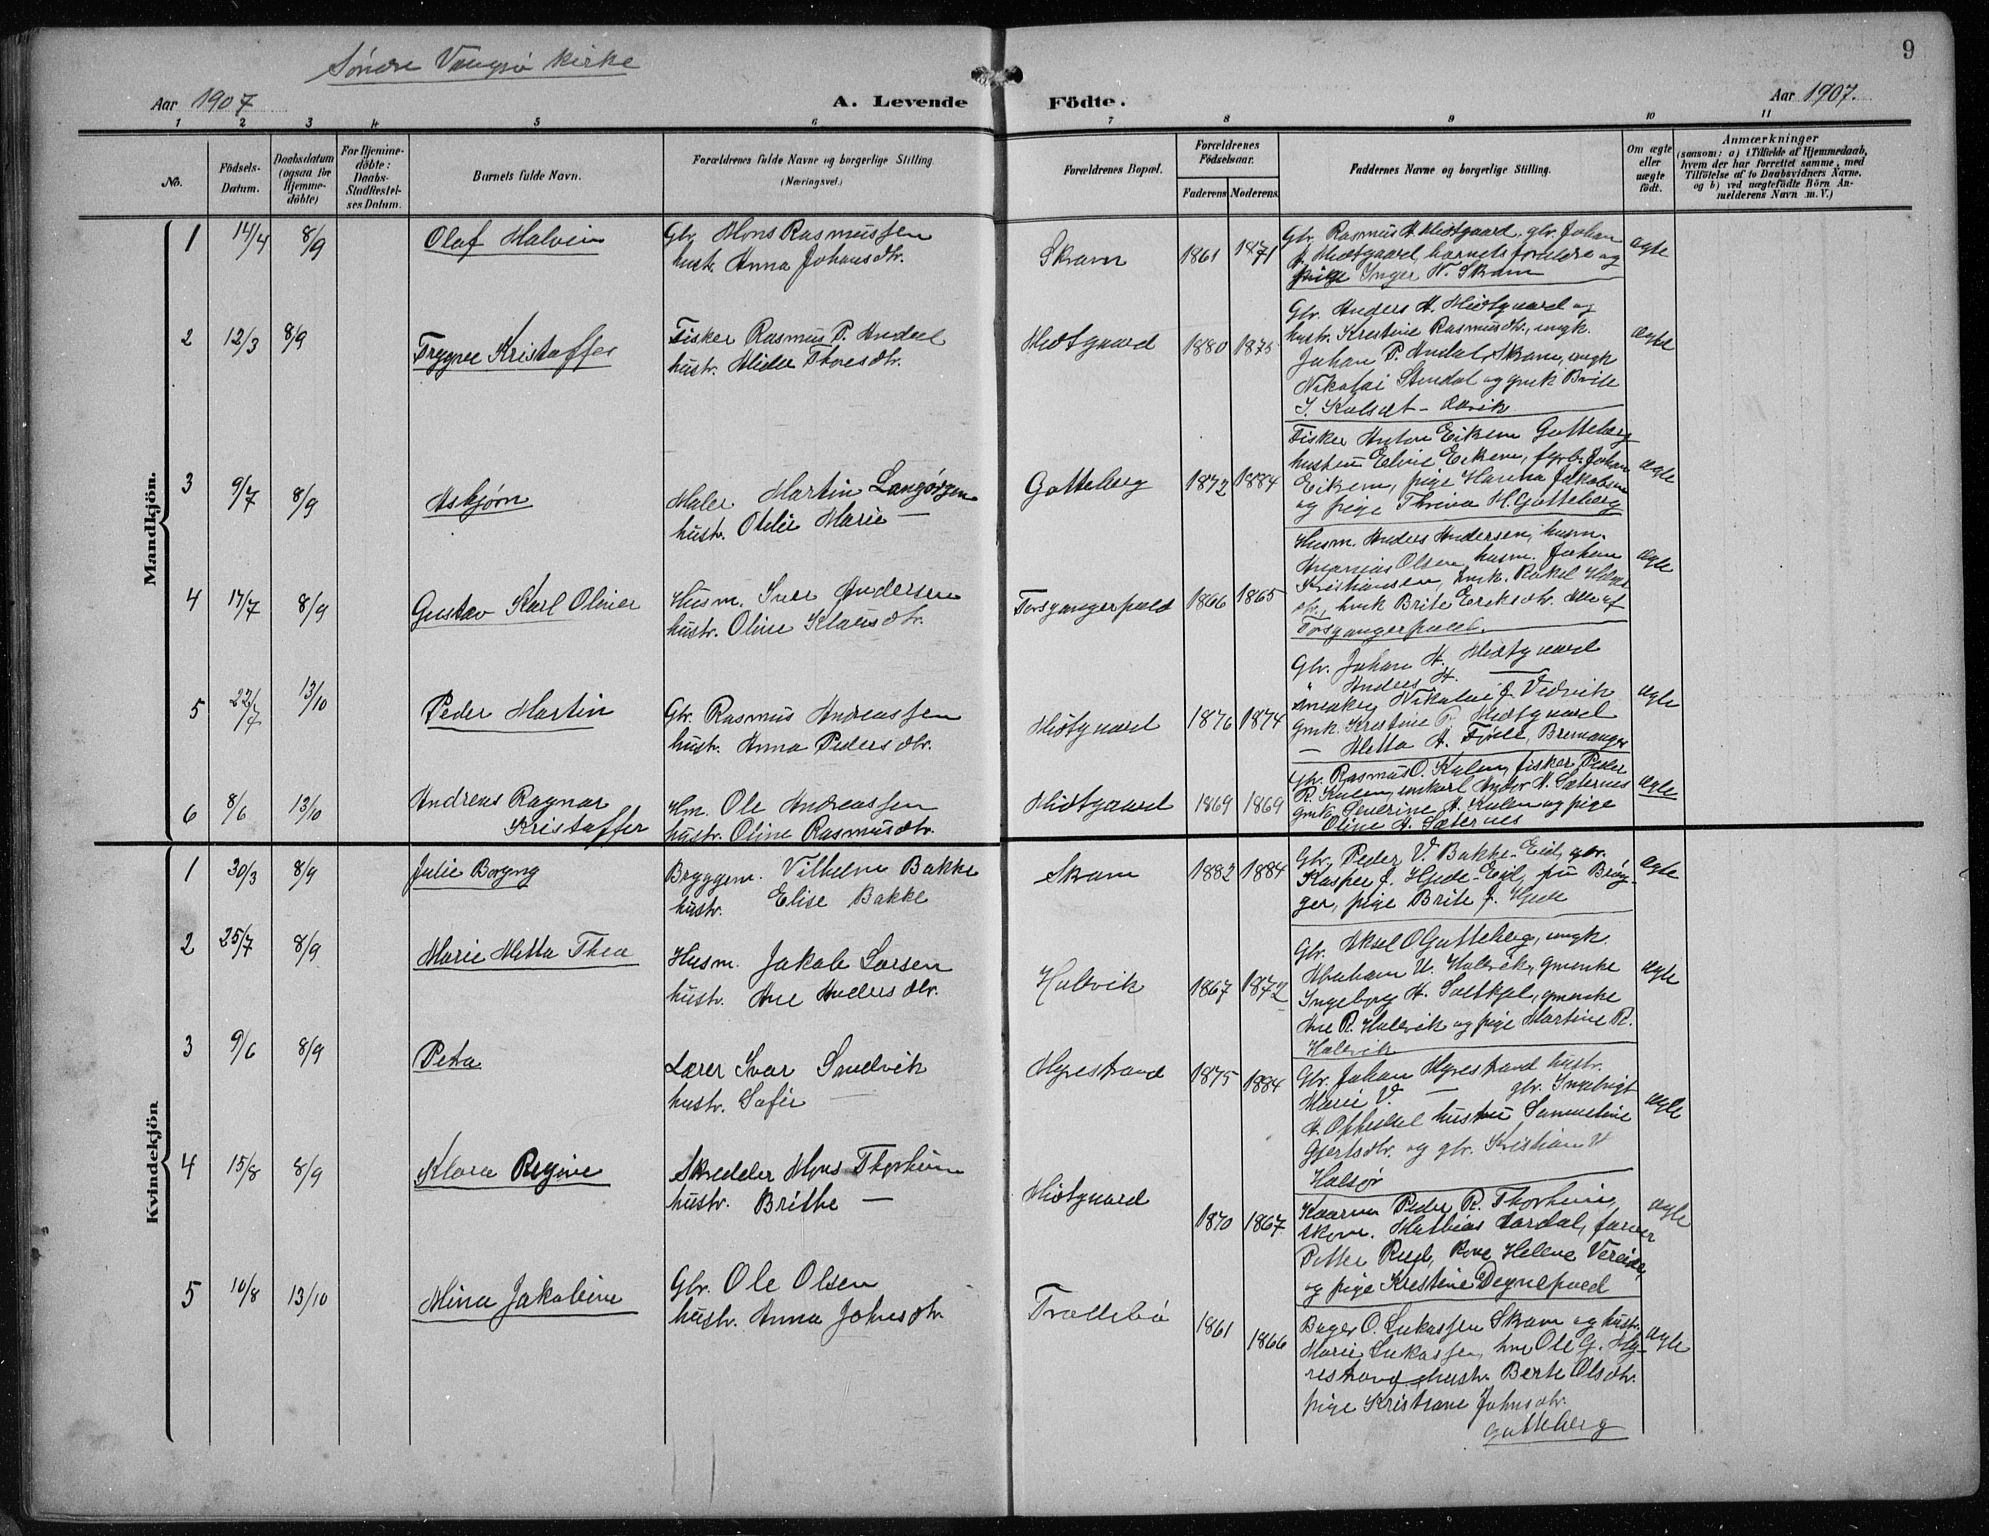 9
Søndre Vaagsø kirke
Aar 1907
A. Levende Födte.
Aar 1907.
1 2 3 4 5 6 7 8 9 10 11
No.
Födsels-Datum.
Daabsdatum (ogsaa for Hjemme-döbte)
For Hjemme-döbte: Daabs-Stadfæstel-ses Datum.
Barnets fulde Navn.
Forældrenes fulde Navne og borgerlige Stilling. (Næringsvei.)
Forældrenes Bopæl.
Forældrenes Födselsaar.
Faderens. Moderens.
Faddernes Navne og borgerlige Stilling.
Om ægte eller uægte födt.
Anmærkninger
(saasom: a) i Tilfælde af Hjemmedaab,
hvem der har forrettet samme, med
Tilföielse af to Daabsvidners Navne.
og b) ved uægtefödte Börn An-
melderens Navn m. V.)
Mandkjön.
1 14/4 8/9 Olaf Halvin
Gbr. Mons Rasmussen
hustr. Anna Johansdtr.
Skram 1861 1871
Gbr. Rasmus A. Midtgaard, gbr. Johan
A. Midtgaard, barnets forældre og
pige Inger N. Skram
ægte
2 12/3 8/9 Trygve Kristoffer
Fisker Rasmus P. Andal
hustr. Alida Thoresdtr.
Midtgaard 1880 1875
Gbr. Anders A. Midtgaard og
hustr. Kristine Rasmusdtr., ungk.
Johan P. Andal, Skram, ungk
Nikolai Stendal og gmk Brite
J. Kulsæt - Aavik
ægte
3 9/7 8/9 Asbjørn
Maler Martin Langørgen
hustr. Otelie Marie —
Gotteberg 1872 1884
Fisker Anton Eikem Gotteberg
hustru Eline Eikem, fyrb. Johan
Eikem, pige Hanna Jakobsen
og pige Thrina M. Gotteberg
ægte
4 17/7 8/9 Gustav Karl Oliver
Husm. Iver Andersen
hustr. Oline Klausdtr.
Torsgangerpold 1866 1865
Husm. Anders Andersen, husm.
Ananias Olsen, husm. Johan
Kristiansen, hmk. Rakel
dtr., hmk Brite Eriksdtr. Alle af
Torsgangerpold.
ægte
5 22/7 13/10 Peder Martin
Gbr. Rasmus Andreassen
hustr. Anna Pedersdtr.
Midtgaard 1876 1874
Gbr. Johan A. Midtgaard
" Anders A. —
snedker Nikolai J. Vedvik
gmk. Kristine R. Midtgaard
— Metta A. Bremanger
ægte
6 8/6 13/10 Andreas Ragnar
Kristoffer
Hm. Ole Andreassen
hustr. Oline Rasmusdtr.
Midtgaard 1869 1869
Gbr. Rasmus O. Kulen, fisker Peder
R. Kulen, unkarl Andor A. Sæternes
gmk. Severine A. Kulen og pige
Oline A. Sæternes
ægte
Kvindekjön
1 30/3 8/9 Julie Borgny
Bryggem. Vilhelm Bakke
hustr. Elise Bakke
Skram 1882 1884
Gbr. Peder V. Bakke - Eid, gbr.
Kasper J. Hjelle - Eid, fru Brøg-
ger, pige Brite J. Hjelle
ægte
2 25/7 8/9 Marie Metta Thea
Husm. Jakob Larsen
hustr. Ane Andersdtr.
Halvik 1867 1872
Gbr. Aksel O Gotteberg, ungk.
Abraham H. Halvik, gmenke
Ingeborg A. Saltkjel, gmenke
Ane R. Halvik og pige Martine R.
Halvik
ægte
3 9/6 8/9 Peta
Lærer Ivar Sandvik
hustr. Sofie —
Myrestrand 1875 1884
Gbr. Johan Myrestrand hustr.
Marie V. — gbr. Ingebrigt
A. Oppedal hustru Samueline
Gjertsdtr. og gbr. Kristian H
Halsør
ægte
4 15/8 8/9 Klara Regine
Skredder Mons Thorheim
hustr. Brithe —
Midtgaard 1870 1867
Kaarm. Peder R. Thorheim,
skom. Mathias Aardal, farver
Petter Rusd, kone Helene Vereide,
og pige Kristine Degnepold
ægte
5 10/8 13/10 Mina Jakobine
Gbr. Ole Olsen
hustr. Anna Johnsdtr.
Trællebø 1861 1866
Bager O. Lukassen Skram og hustr.
Marie Lukassen, hm Ole G. My-
restrand, hustr. Berte Olsdtr.
pige Kristiane Johnsdtr.
Gotteberg
ægte